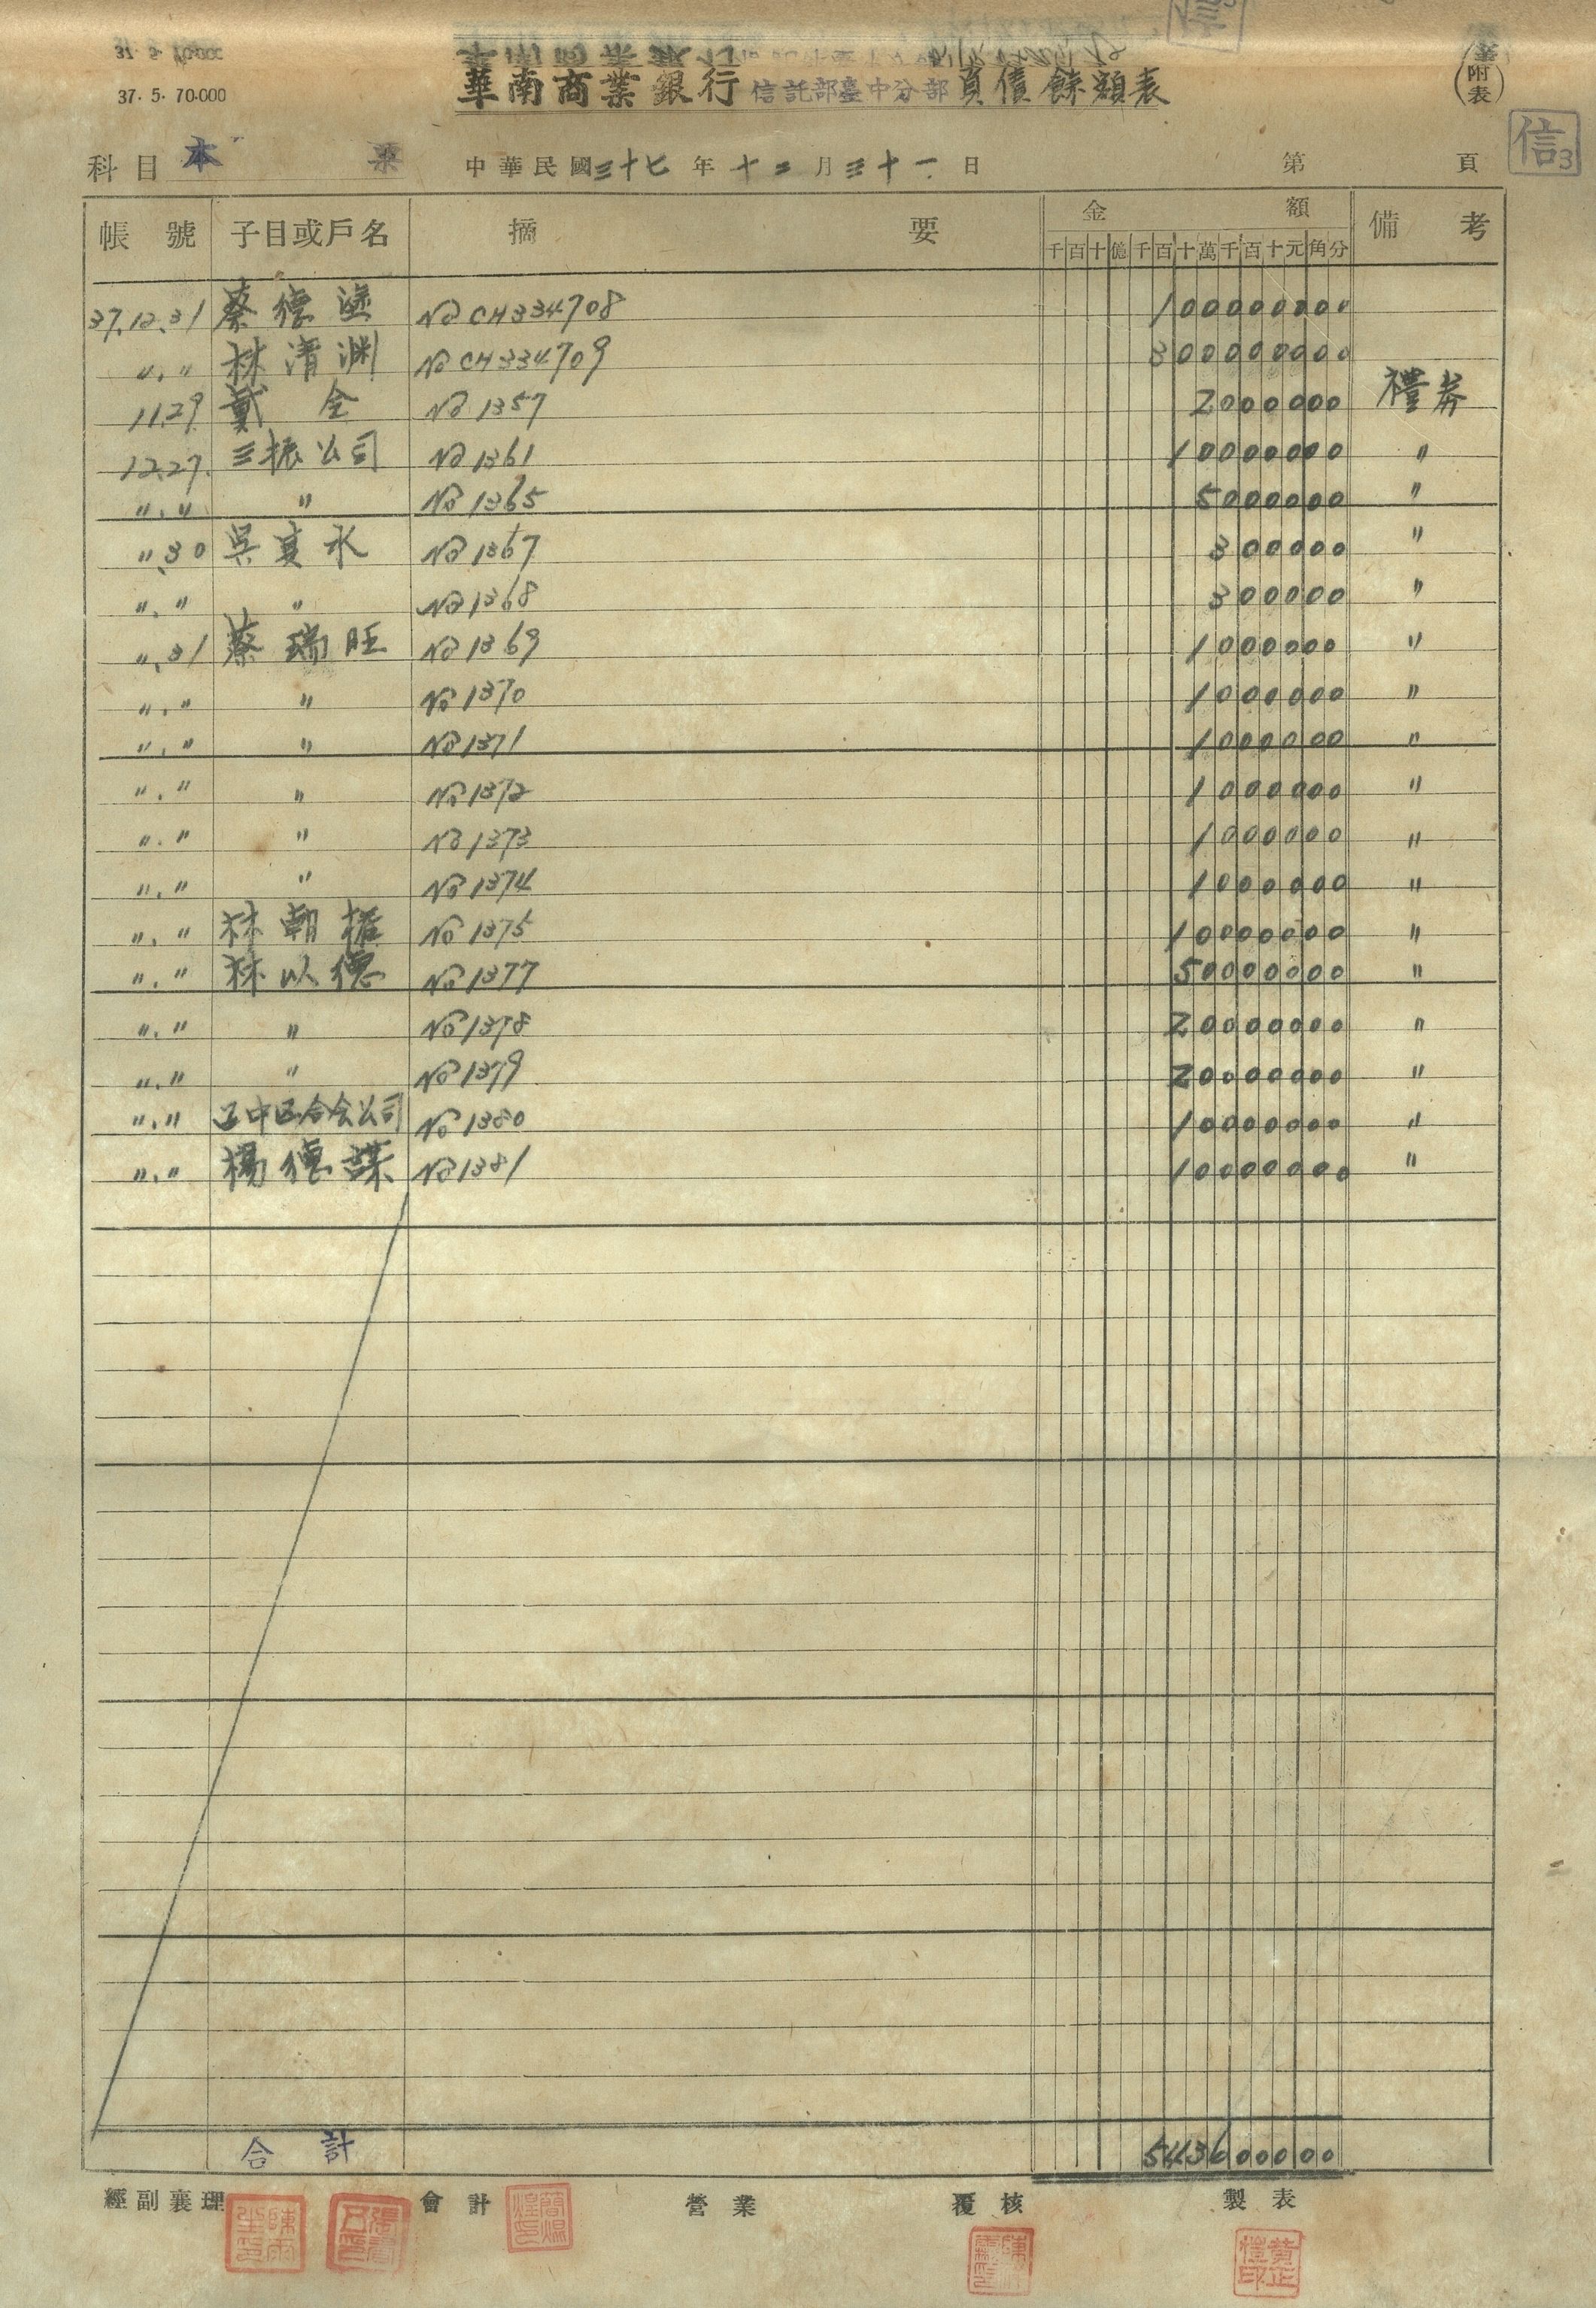 37. 5. 70.000
華南商業銀行信託部臺中分部負債餘額表
(附表)
信3
科目 本票 中華民國三十七年十二月三十一日 第 頁
帳號 子目或戶名 摘要 金額 備考
千百十億千百十萬千百十元角分
37.12.31 蔡德 No CH334708 100000000
〃.〃 林清渊 No CH334709 300000000
11.29 戴全 No 1357 2000000 禮券
12.27. 三振公司 No 1361 10000000 〃
〃.〃 〃 No 1365 5000000 〃
〃.30 吳永 No 1367 300000 〃
〃.〃 〃 No 1368 300000 〃
〃.31 蔡瑞旺 No 1369 1000000 〃
〃.〃 〃 No 1370 1000000 〃
〃.〃 〃 No 1371 1000000 〃
〃.〃 〃 No 1372 1000000 〃
〃.〃 〃 No 1373 1000000 〃
〃.〃 〃 No 1374 1000000 〃
〃.〃 林朝 No 1375 10000000 〃
〃.〃 林以德 No 1377 50000000 〃
〃.〃 〃 No 1378 20000000 〃
〃.〃 〃 No 1379 20000000 〃
〃.〃 中区合会公司 No 1380 10000000 〃
〃.〃 楊德謀 No 1381 10000000 〃
合計 543600000
經副襄理 會計 營業 覆核 製表